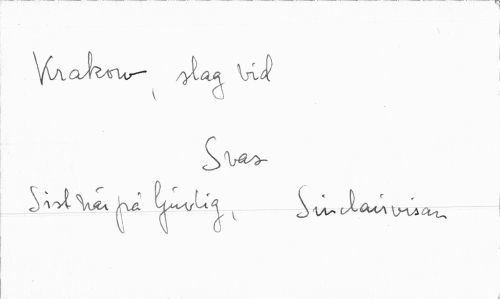 Krakow, slag vid
Svas
Sist när på ljuvlig, Sinclairvisan